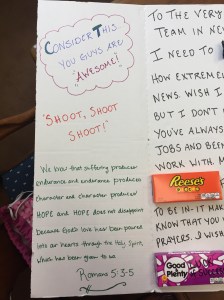 CONSIDER THIS
YOU GUYS ARE
"AWESOME!"
"SHOOT, SHOOT
SHOOT!"
We know that suffering produces
endurance and endurance produces
character and character produces
HOPE and HOPE does not disappoint
because God's love has been poured
into our hearts through the Holy Spirit,
which has been given to us.
Romans 5:3-5
TO THE VERY
TEAM IN NE
I NEED TO
HOW EXTREMEL
NEWS. WISH I
BUT I DON'T
YOU'VE ALWAYS
JOBS AND BEEN
WORK WITH M
Reese's
TO BE IN - IT MA
KNOW THAT YOU
PRAYERS. I WISH
Good
Plenty